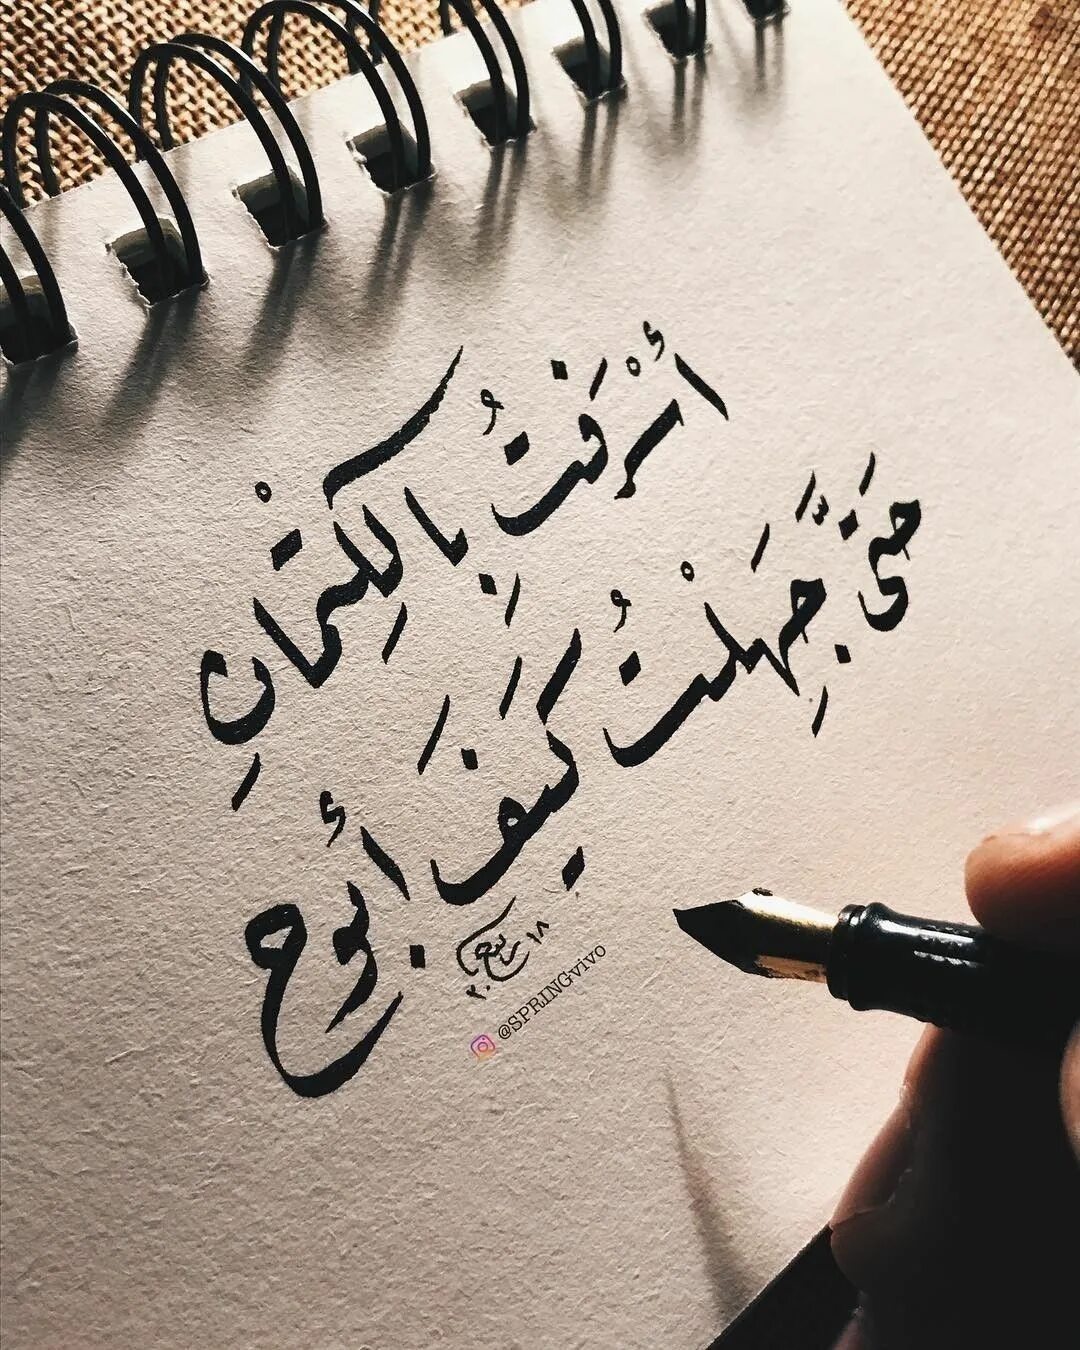 أَسْرَفتُ بِالكِتمْانِ
حَتَّى جَهِلْتُ كَيفَ أَبوح
ربيع
٢٠١٨
@SPRINGvivo